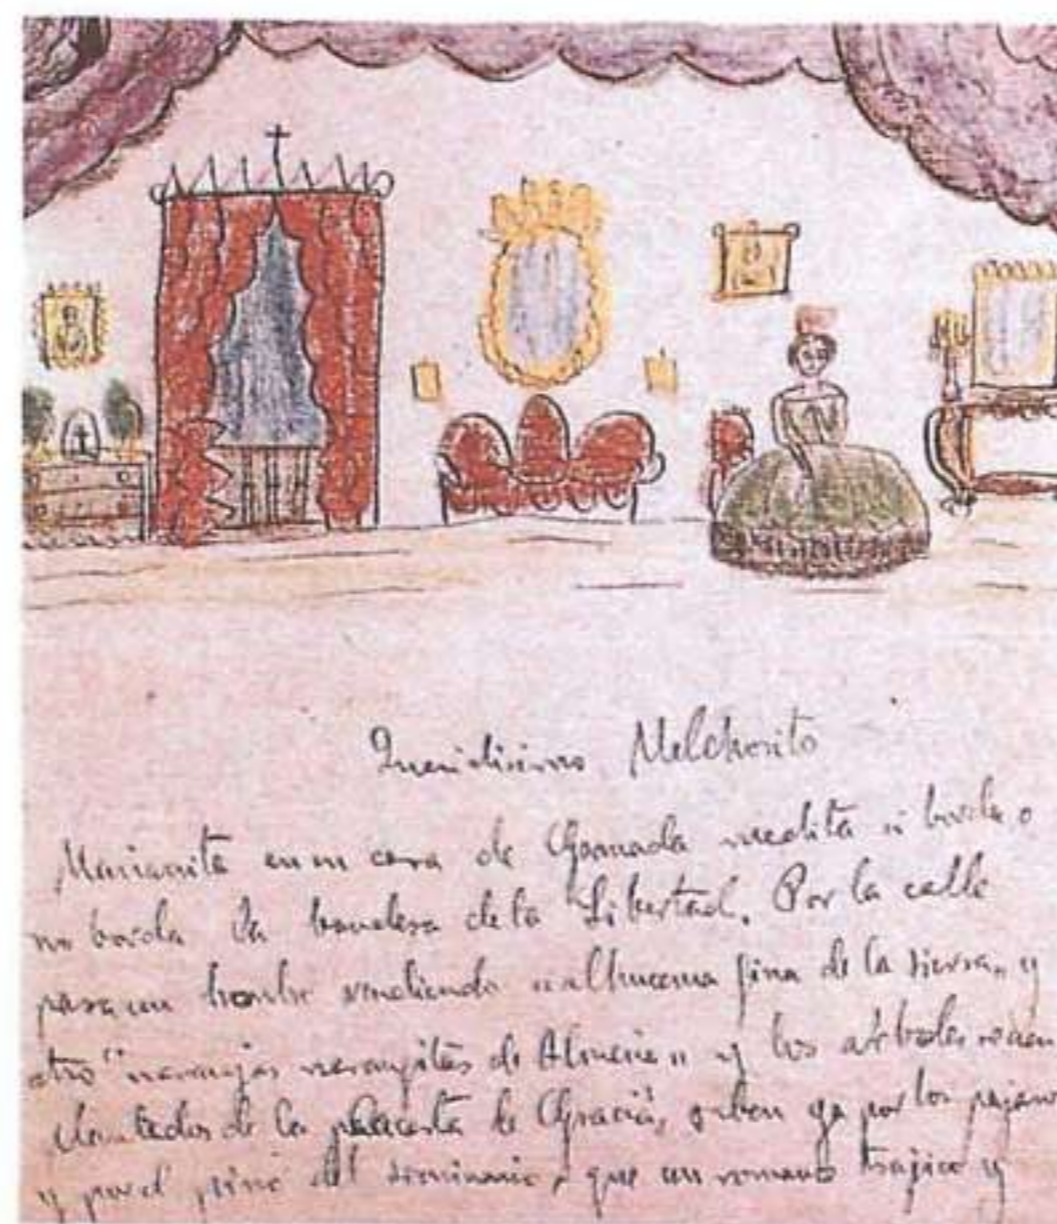 Queridísimo Melchorito
Marianita en su casa de Granada medita si borda o
no borda la bandera de la Libertad. Por la calle
pasa un hombre vendiendo "alhucema fina de la sierra" y
otro "naranjas naranjitas de Almería" y los árboles recien
plantados de la placeta de Gracia, saben ya por los pajaros
y por el pino del seminario, que un romance trajico y